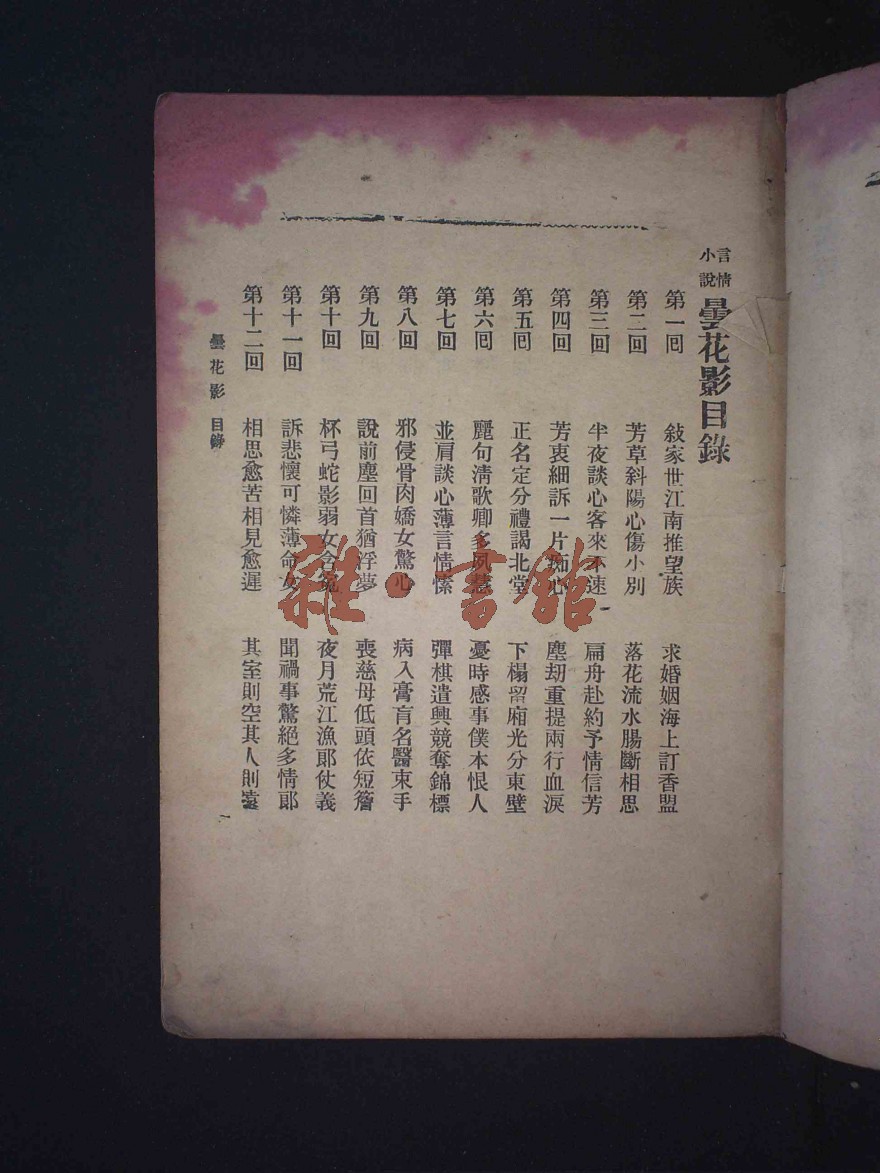 言情小說 曇花影目錄
第一回 敍家世江南推望族 求婚姻海上訂香盟
第二回 芳草斜陽心傷小別 落花流水腸斷相思
第三回 半夜談心客來不速 扁舟赴約予情信芳
第四回 芳衷細訴一片痴心 塵刧重提兩行血淚
第五回 正名定分禮謁北堂 下榻留廂光分東壁
第六回 麗句淸歌卿多夙慧 憂時感事僕本恨人
第七回 並肩談心薄言情愫 彈棋遣興競奪錦標
第八回 邪侵骨肉嬌女驚心 病入膏肓名醫束手
第九回 說前塵回首猶浮夢 喪慈母低頭依短簷
第十回 杯弓蛇影弱女含冤 夜月荒江漁郞仗義
第十一回 訴悲懷可憐薄命女 聞禍事驚絕多情郞
第十二回 相思愈苦相見愈遲 其室則空其人則遠
曇花影 目錄
一
雜·書館